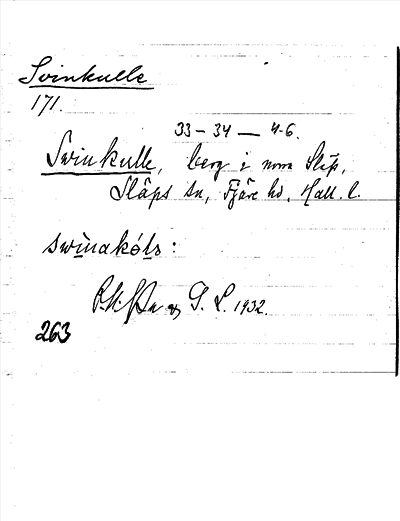 Svinkulle
171.
33 – 34 — 4-6.
Svinkulle, berg i norra Släp,
Släps sn, Fjäre hd. Hall. l.
swìnakóls :
G. L. 1932.
263